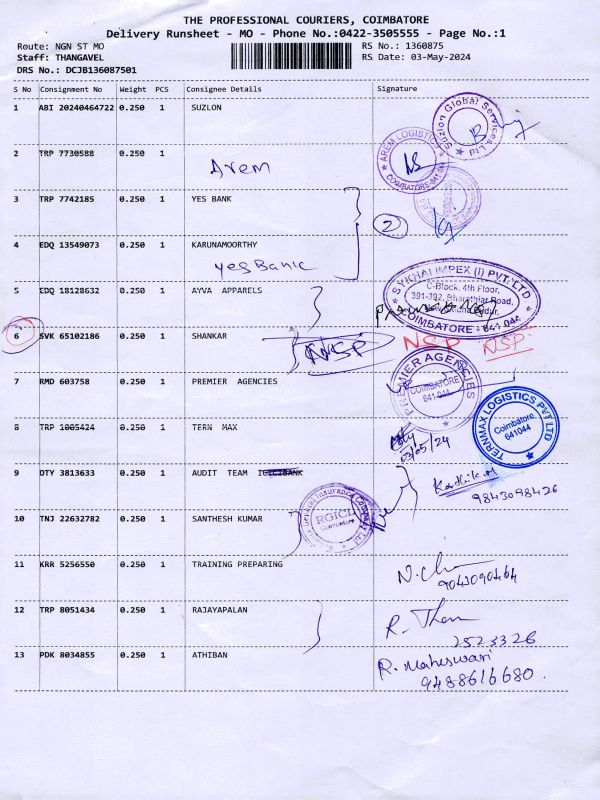 THE PROFESSIONAL COURIERS, COIMBATORE
Delivery Runsheet - MO - Phone No.:0422-3505555 - Page No.:1
Route: NGN ST MO
RS No.: 1360875
Staff: THANGAVEL
RS Date: 03-May-2024
DRS No.: DCJB136087501
S No Consignment No Weight PCS Consignee Details Signature
1 ABI 20240464722 0.250 1 SUZLON
Suzlon Global Services Ltd
2 TRP 7730588 0.250 1
Arem
AREM LOGISTICS
COIMBATORE-641 044
3 TRP 7742185 0.250 1 YES BANK
2
4 EDQ 13549073 0.250 1 KARUNAMOORTHY
yes Bank
5 EDQ 18128632 0.250 1 AYVA APPARELS
SYKHAI IMPEX (I) PVT. LTD
C-Block, 4th Floor,
391-392, Bharathiar Road,
COIMBATORE - 641 044
6 SVK 65102186 0.250 1 SHANKAR
NSP NSP NSP
7 RMD 603758 0.250 1 PREMIER AGENCIES
PREMIER AGENCIES
COIMBATORE
641 044
8 TRP 1005424 0.250 1 TERN MAX
03/05/24
TERNMAX LOGISTICS PVT LTD
Coimbatore
641044
9 DTY 3813633 0.250 1 AUDIT TEAM
Karthik
9843098426
10 TNJ 22632782 0.250 1 SANTHESH KUMAR
RGICL
Coimbatore
11 KRR 5256550 0.250 1 TRAINING PREPARING
9040909464
12 TRP 8051434 0.250 1 RAJAYAPALAN
2523326
13 PDK 8034855 0.250 1 ATHIBAN
R. Maheswari
9488616680.